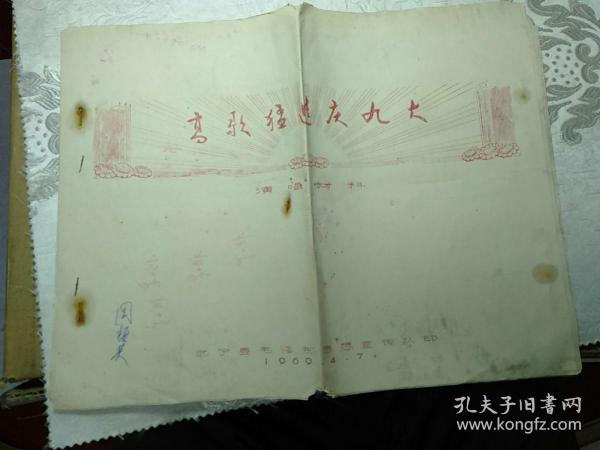 高歌猛进庆九大
演唱材料
武宁县毛泽东思想宣传队印
1969.4.7.
孔夫子旧书网
www.kongfz.com